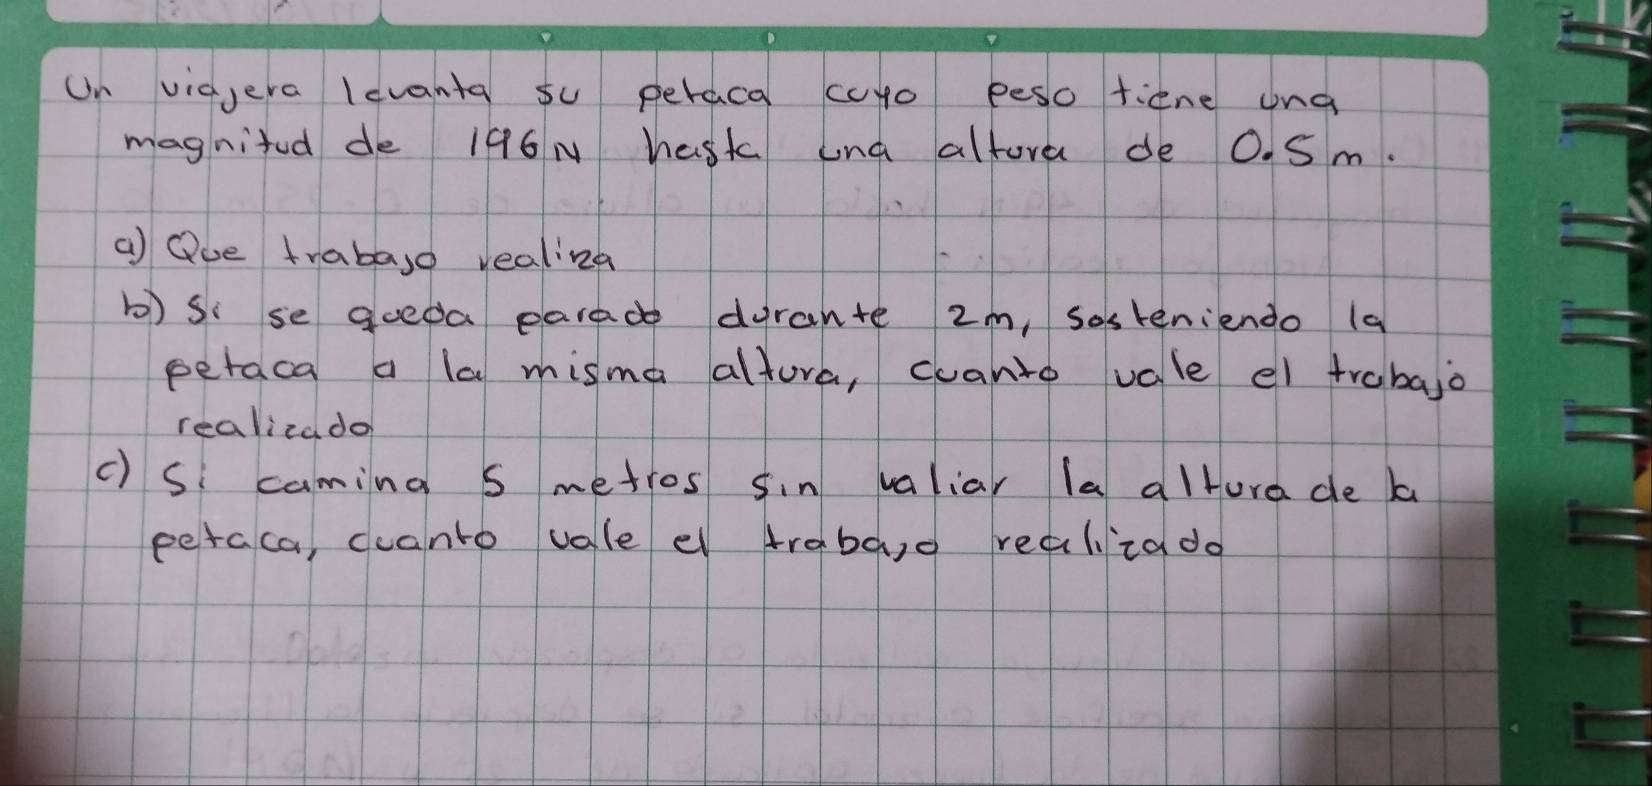 Un viajera levanta su petaca cuyo peso tiene una
magnitud de 196 N hasta una altura de 0.5 m.
a) Que trabajo realiza
b) Si se queda parado durante 2m, sosteniendo la
petaca a la misma altura, cuanto vale el trabajo
realizado
c) Si camina 5 metros sin valiar la altura de la
petaca, cuanto vale el trabajo realizado